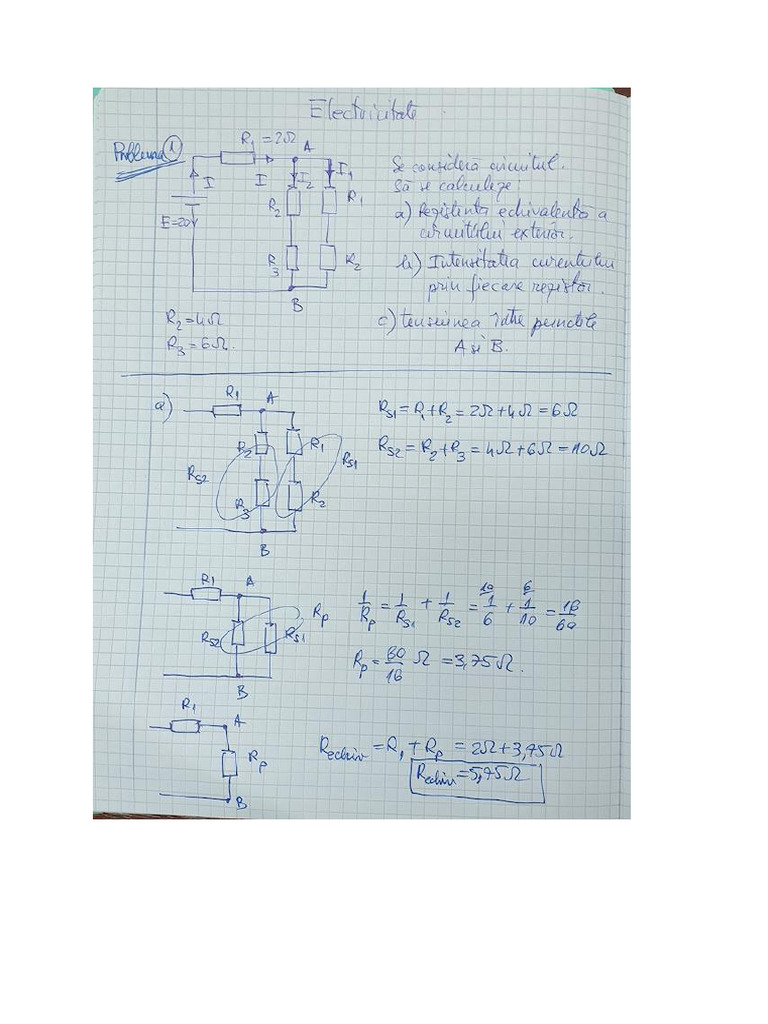 Electricitate
Problema 1
R1 = 2Ω
A
I
I
I2
I1
R2
R1
E=20V
R3
R2
B
R2=4Ω
R3=6Ω.
Se consideră circuitul.
Să se calculeze:
a) Rezistența echivalentă a
circuitului exterior.
b) Intensitatea curentului
prin fiecare rezistor.
c) tensiunea între punctele
A și B.
a)
R1
A
R2
R1
RS2
RS1
R3
R2
B
RS1=R1+R2=2Ω+4Ω=6Ω
RS2=R2+R3=4Ω+6Ω=10Ω
R1
A
Rp
RS2
RS1
B
1/Rp = 1/RS1 + 1/RS2 = 10/ 1/6 + 6/ 1/10 = 16/60
Rp = 60/16 Ω = 3,75Ω.
R1
A
Rp
B
Rechiv = R1 + Rp = 2Ω+3,75Ω
Rechiv=5,75Ω